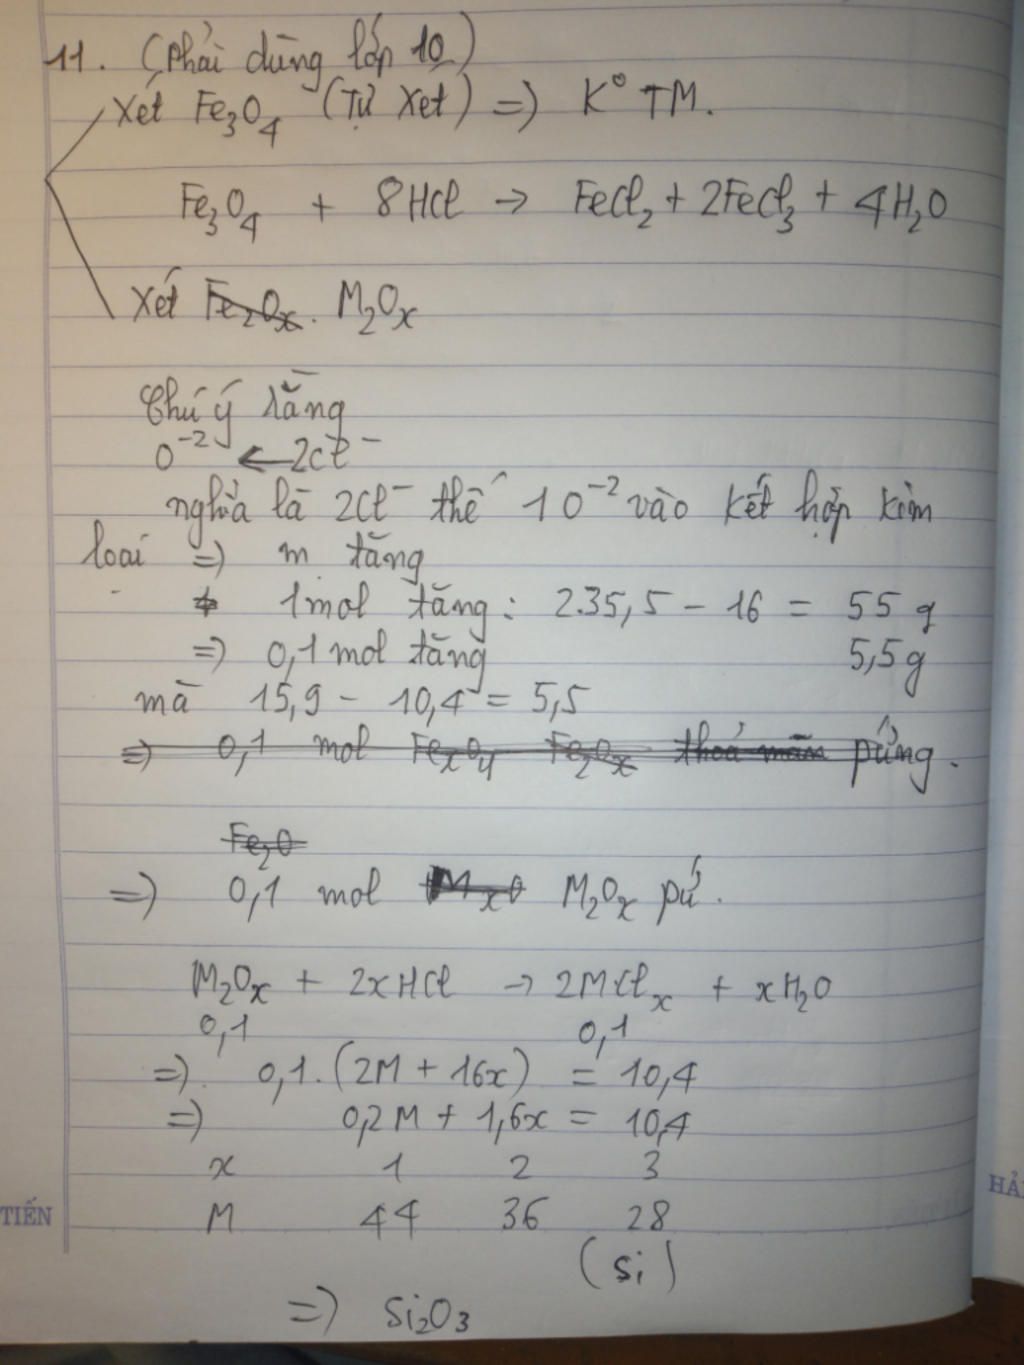 11. (Phải dùng lớp 10)
Xét Fe₃O₄ (Tự xét) => K° TM.
Fe₃O₄ + 8HCl → FeCl₂ + 2FeCl₃ + 4H₂O
Xét Fe₂Oₓ. M₂Oₓ
Chú ý rằng
O⁻² ← 2Cl⁻
nghĩa là 2Cl⁻ thế 1 O⁻² vào kết hợp kim
loại => m tăng
1 mol tăng: 2.35,5 - 16 = 55 g
=> 0,1 mol tăng 5,5 g
mà 15,9 - 10,4 = 5,5
=> 0,1 mol FeₓOy Fe₂Oₓ thoả mãn pứng.
Fe₂O
=> 0,1 mol MₓO M₂Oₓ pứ.
M₂Oₓ + 2xHCl → 2MClₓ + xH₂O
0,1 0,1
=> 0,1.(2M + 16x) = 10,4
=> 0,2M + 1,6x = 10,4
x 1 2 3
TIẾN M 44 36 28
HẢ
(Si)
=> Si₂O₃